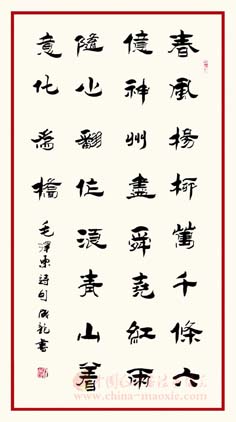 春風楊柳萬千條六
億神州盡舜堯紅雨
隨心翻作浪青山着
意化為橋 毛澤東詩句 書
www.china-maoxie.com